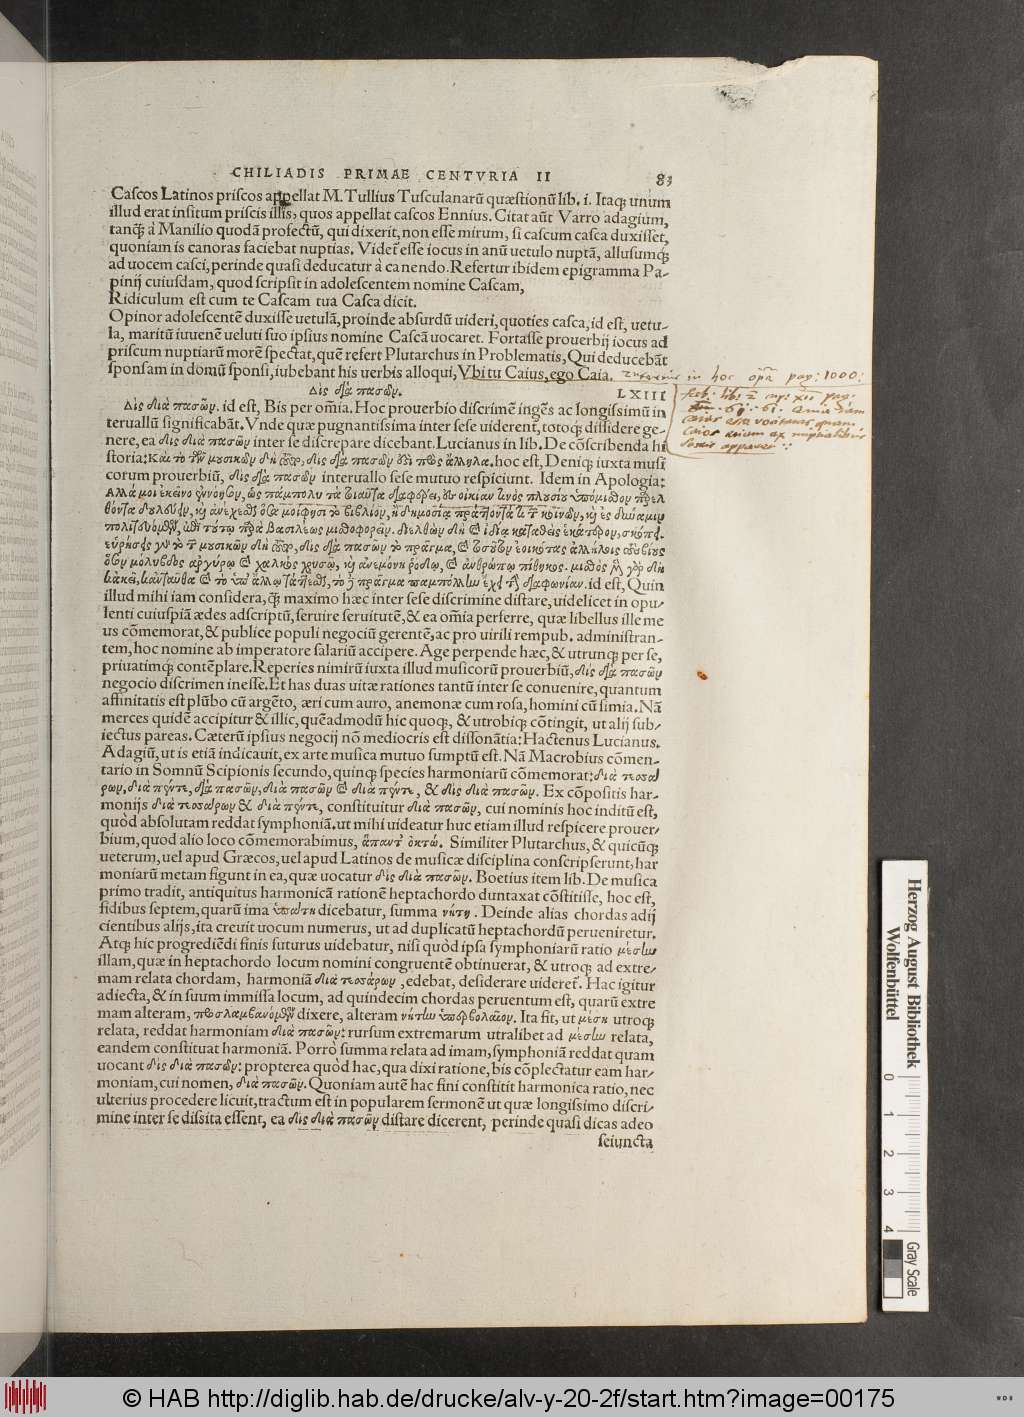 CHILIADIS PRIMAE CENTVRIA II 83
Cascos Latinos priscos appellat M. Tullius Tusculanarū quæstionū lib. i. Itaq; unum
illud erat insitum priscis illis, quos appellat cascos Ennius. Citat aūt Varro adagium,
tanq̄ à Manilio quodā profectū, qui dixerit, non esse mirum, si cascum casca duxisset,
quoniam is canoras faciebat nuptias. Videt̄ esse iocus in anū uetulo nuptā, allusumq;
ad uocem casci, perinde quasi deducatur à canendo. Refertur ibidem epigramma Pa-
pinij cuiusdam, quod scripsit in adolescentem nomine Cascam,
Ridiculum est cum te Cascam tua Casca dicit.
Opinor adolescentē duxisse uetulā, proinde absurdū uideri, quoties casca, id est, uetu-
la, maritū iuuenē ueluti suo ipsius nomine Cascā uocaret. Fortasse prouerbij iocus ad
priscum nuptiarū morē spectat, quē refert Plutarchus in Problematis, Qui deducebāt
sponsam in domū sponsi, iubebant his uerbis alloqui, Vbi tu Caius, ego Caia.
in hoc pag: 1000:
Δὶς διὰ πασῶν. LXIII
Δὶς διὰ πασῶν. id est, Bis per omīa. Hoc prouerbio discrimē ingēs ac longissimū in
teruallū significabāt. Vnde quæ pugnantissima inter sese uiderent, totoq; dissidere ge-
nere, ea δὶς διὰ πασῶν inter se discrepare dicebant. Lucianus in lib. De cōscribenda hi
storia: Καὶ τὸ τῶν μουσικῶν δὴ τοῦτο, δὶς διὰ πασῶν ἐστι πρὸς ἄλληλα. hoc est, Deniq; iuxta musi
corum prouerbiū, δὶς διὰ πασῶν interuallo sese mutuo respiciunt. Idem in Apologia:
Ἀλλά μοι ἐκεῖνο ἐννόησον, ὡς πάμπολυ τὰ τοιαῦτα διαφέρει, ἐς οἰκίαν τινὸς πλουσίου ὑπόμισθον παρελ
θόντα δουλεύειν, καὶ ἀνέχεσθαι ὅσα μοι φησὶ τὸ βιβλίον, ἢ δημοσίᾳ πράττοντά τι τῶν κοινῶν, καὶ ἐς δύναμιν
πολιτευόμενον, ἐπὶ τούτῳ παρὰ βασιλέως μισθοφορεῖν. διελθὼν δὴ καὶ ἰδίᾳ καταθεὶς ἑκάτερον, σκόπει.
εὑρήσεις γὰρ τὸ τῶν μουσικῶν δὴ τοῦτο, δὶς διὰ πασῶν τὸ πρᾶγμα, καὶ τοσοῦτον ἐοικότας ἀλλήλοις τοὺς βίους
ὅσον μόλυβδος ἀργύρῳ καὶ χαλκὸς χρυσῷ, καὶ ἀνεμώνη ῥόδῳ, καὶ ἀνθρώπῳ πίθηκος. μισθὸς μὲν γὰρ δὴ
κἀκεῖ, κἀνταῦθα καὶ τὸ ὑπ' ἄλλῳ τάττεσθαι, τὸ δὲ πρᾶγμα παμπόλλην ἔχει τὴν διαφωνίαν. id est, Quin
illud mihi iam considera, q̄ maximo hæc inter sese discrimine distare, uidelicet in opu-
lenti cuiuspiā ædes adscriptū, seruire seruitutē, & ea omīa perferre, quæ libellus ille me
us cōmemorat, & publice populi negociū gerentē, ac pro uirili rempub. administran-
tem, hoc nomine ab imperatore salariū accipere. Age perpende hæc, & utrunq; per se,
priuatimq; contēplare. Reperies nimirū iuxta illud musicorū prouerbiū, δὶς διὰ πασῶν
negocio discrimen inesse. Et has duas uitæ rationes tantū inter se conuenire, quantum
affinitatis est plūbo cū argēto, æri cum auro, anemonæ cum rosa, homini cū simia. Nā
merces quidē accipitur & illic, quēadmodū hic quoq;, & utrobiq; cōtingit, ut alij sub-
iectus pareas. Cæterū ipsius negocij nō mediocris est dissonātia: Hactenus Lucianus.
Adagiū, ut is etiā indicauit, ex arte musica mutuo sumptū est. Nā Macrobius cōmen-
tario in Somnū Scipionis secundo, quinq; species harmoniarū cōmemorat: διὰ τεσσά
ρων, διὰ πέντε, διὰ πασῶν, διὰ πασῶν καὶ διὰ πέντε, & δὶς διὰ πασῶν. Ex cōpositis har-
monijs διὰ τεσσάρων & διὰ πέντε, constituitur διὰ πασῶν, cui nominis hoc inditū est,
quòd absolutam reddat symphoniā. ut mihi uideatur huc etiam illud respicere prouer-
bium, quod alio loco cōmemorabimus, ἅπαντ' ὀκτώ. Similiter Plutarchus, & quicūq;
ueterum, uel apud Græcos, uel apud Latinos de musicæ disciplina conscripserunt, har
moniarū metam figunt in ea, quæ uocatur δὶς διὰ πασῶν. Boetius item lib. De musica
primo tradit, antiquitus harmonicā rationē heptachordo duntaxat cōstitisse, hoc est,
fidibus septem, quarū ima ὑπάτη dicebatur, summa νήτη. Deinde alias chordas adij
cientibus alijs, ita creuit uocum numerus, ut ad duplicatū heptachordū perueniretur.
Atq; hic progrediēdi finis futurus uidebatur, nisi quòd ipsa symphoniarū ratio μέσην
illam, quæ in heptachordo locum nomini congruentē obtinuerat, & utroq; ad extre-
mam relata chordam, harmoniā διὰ τεσσάρων, edebat, desiderare uideret̄. Hac igitur
adiecta, & in suum immissa locum, ad quindecim chordas peruentum est, quarū extre
mam alteram, προσλαμβανόμενον dixere, alteram νήτην ὑπερβολαίων. Ita fit, ut μέση utroq;
relata, reddat harmoniam διὰ πασῶν: rursum extremarum utralibet ad μέσην relata,
eandem constituat harmoniā. Porrò summa relata ad imam, symphoniā reddat quam
uocant δὶς διὰ πασῶν: propterea quòd hac, qua dixi ratione, bis cōplectatur eam har-
moniam, cui nomen, διὰ πασῶν. Quoniam autē hac fini constitit harmonica ratio, nec
ulterius procedere licuit, tractum est in popularem sermonē ut quæ longissimo discri-
mine inter se dissita essent, ea δὶς διὰ πασῶν distare dicerent, perinde quasi dicas adeo
seiuncta
Herzog August Bibliothek
Wolfenbüttel
0 1 2 3 4
Gray Scale
© HAB http://diglib.hab.de/drucke/alv-y-20-2f/start.htm?image=00175